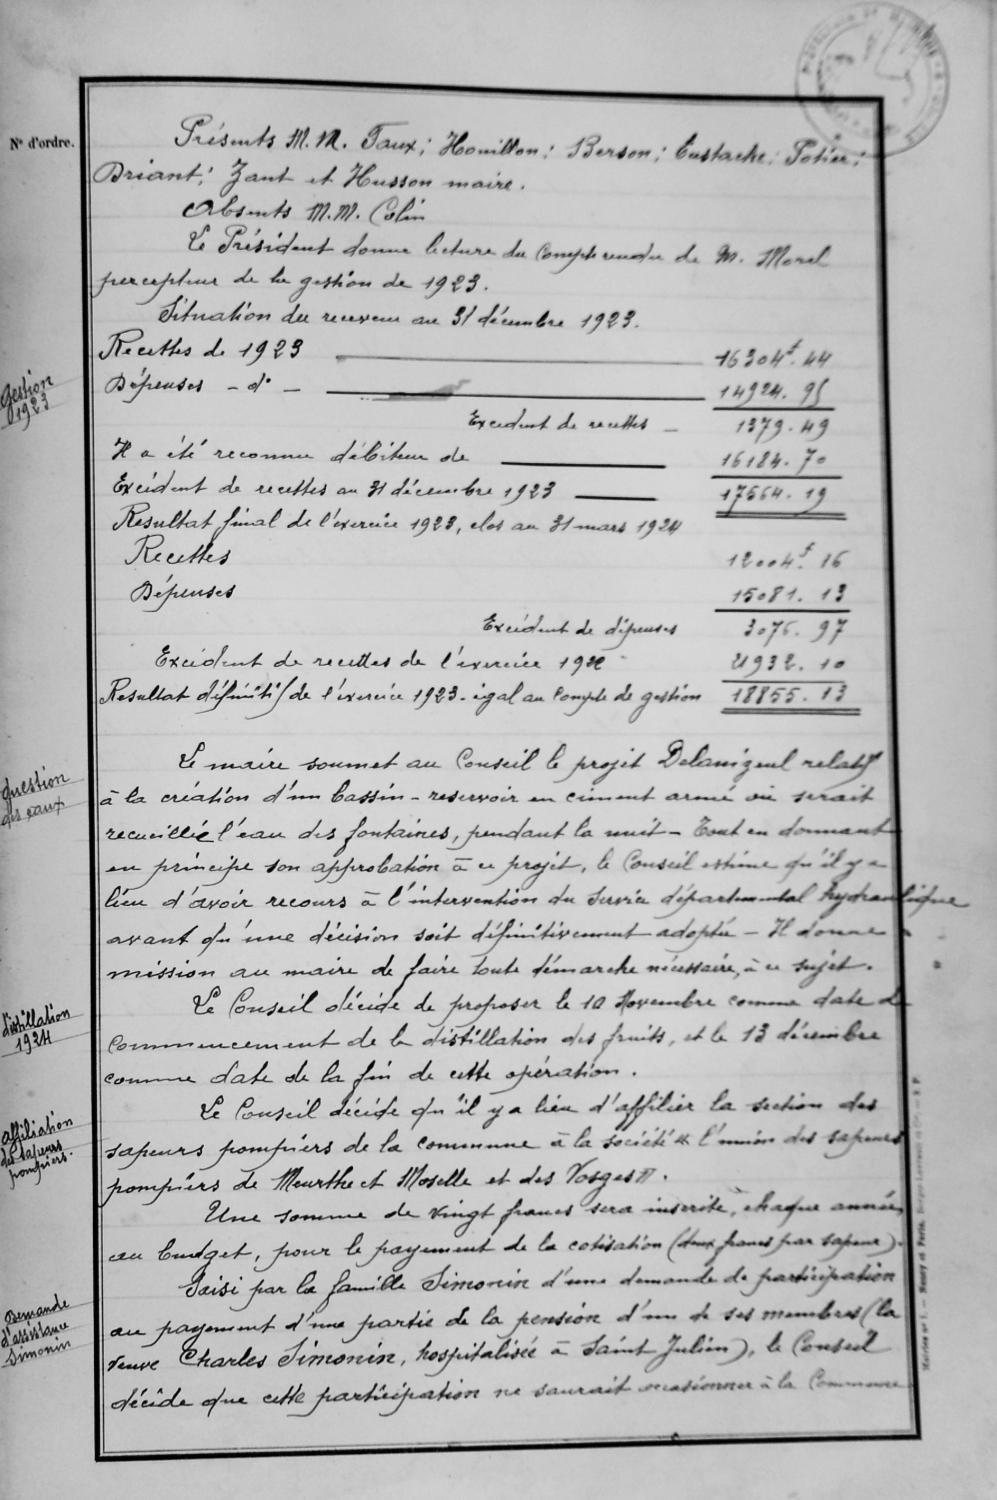 N° d'ordre.
Présents M. M. Faux; Houillon; Berson; Eustache; Potier;
Briant; Zant et Husson maire.
Absents M.M. Colin
Le Président donne lecture du Compte rendu de M. Morel
percepteur de la gestion de 1923.
Situation du receveur au 31 décembre 1923.
Gestion
1923
Recettes de 1923 16304f.44
Dépenses - d° - 14924.95
Excédent de recettes - 1379.49
Il a été reconnu débiteur de 16184.70
Excédent de recettes au 31 décembre 1923 17564.19
Resultat final de l'exercice 1923, clos au 31 mars 1924
Recettes 12004f.16
Dépenses 15081.13
Excédent de dépenses 3076.97
Excédent de recettes de l'exercice 1922 21932.10
Resultat définitif de l'exercice 1923 - égal au Compte de gestion 18855.13
Question
des eaux
Le maire soumet au Conseil le projet relatif
à la création d'un bassin-reservoir en ciment armé où serait
recueillie l'eau des fontaines, pendant la nuit - Tout en donnant
en principe son approbation à ce projet, le Conseil estime qu'il y a
lieu d'avoir recours à l'intervention du service départemental hydraulique
avant qu'une décision soit définitivement adoptée - Il donne
mission au maire de faire toute démarche nécessaire, à ce sujet.
distillation
1924
Le Conseil décide de proposer le 10 Novembre comme date de
commencement de la distillation des fruits, et le 13 décembre
comme date de la fin de cette opération.
affiliation
des sapeurs
pompiers.
Le Conseil décide qu'il y a lieu d'affilier la section des
sapeurs pompiers de la commune à la société "l'union des sapeurs
pompiers de Meurthe et Moselle et des Vosges".
Une somme de vingt francs sera inscrite, chaque année,
au budget, pour le payement de la cotisation (deux francs par sapeur).
Demande
d'assistance
Simonin
Saisi par la famille Simonin d'une demande de participation
au payement d'une partie de la pension d'un de ses membres (la
veuve Charles Simonin, hospitalisée à Saint Julien), le Conseil
décide que cette participation ne saurait occasionner à la Commune